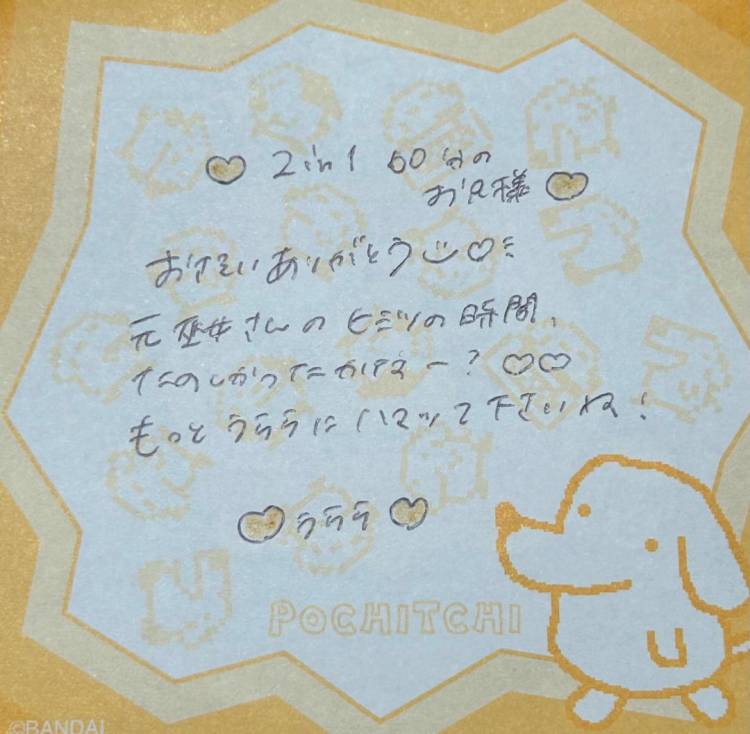 ♡ 2in1 60分の
お兄様 ♡
おさそいありがとう
元巫女さんのヒミツの時間、
たのしかったかなー？♡♡
もっとうららにハマって下さいね！
♡うらら♡
POCHITCHI
©BANDAI